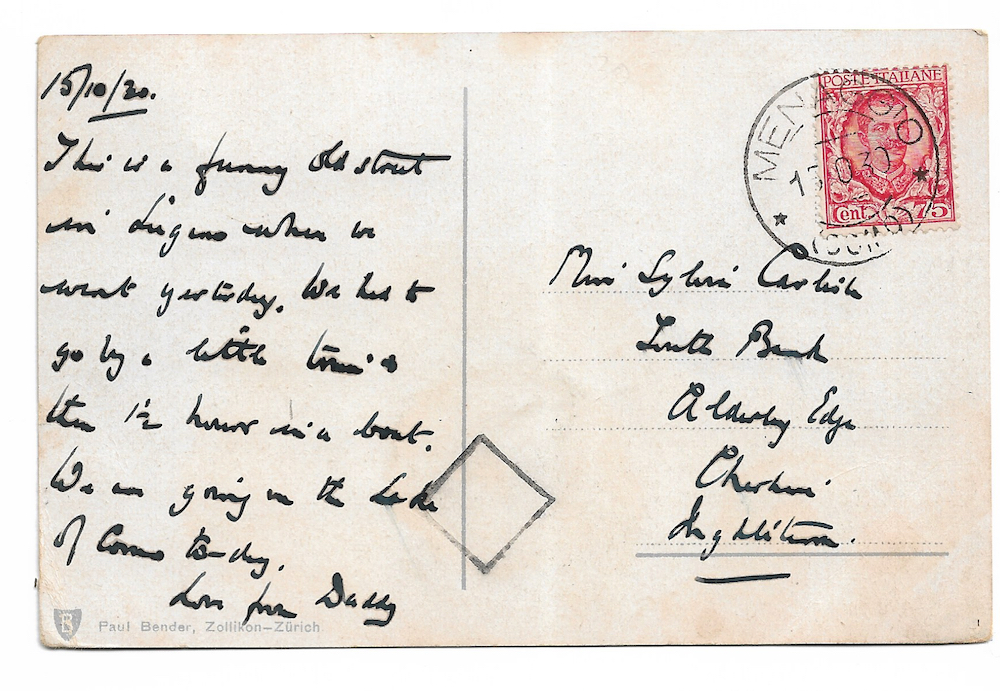 15/10/30.
This is a funny old street
in Lugano when we
went yesterday. We had to
go by a little train &
then 1½ hours in a boat.
We are going on the Lake
of Como to-day.
Love from Daddy
B
Paul Bender, Zollikon—Zürich
POSTE ITALIANE
Cent. 75
MENAGGIO
15.10.30
(COMO)
Miss Sylvia Carlish
South Bank
Alderley Edge
Cheshire
Inghilterra.